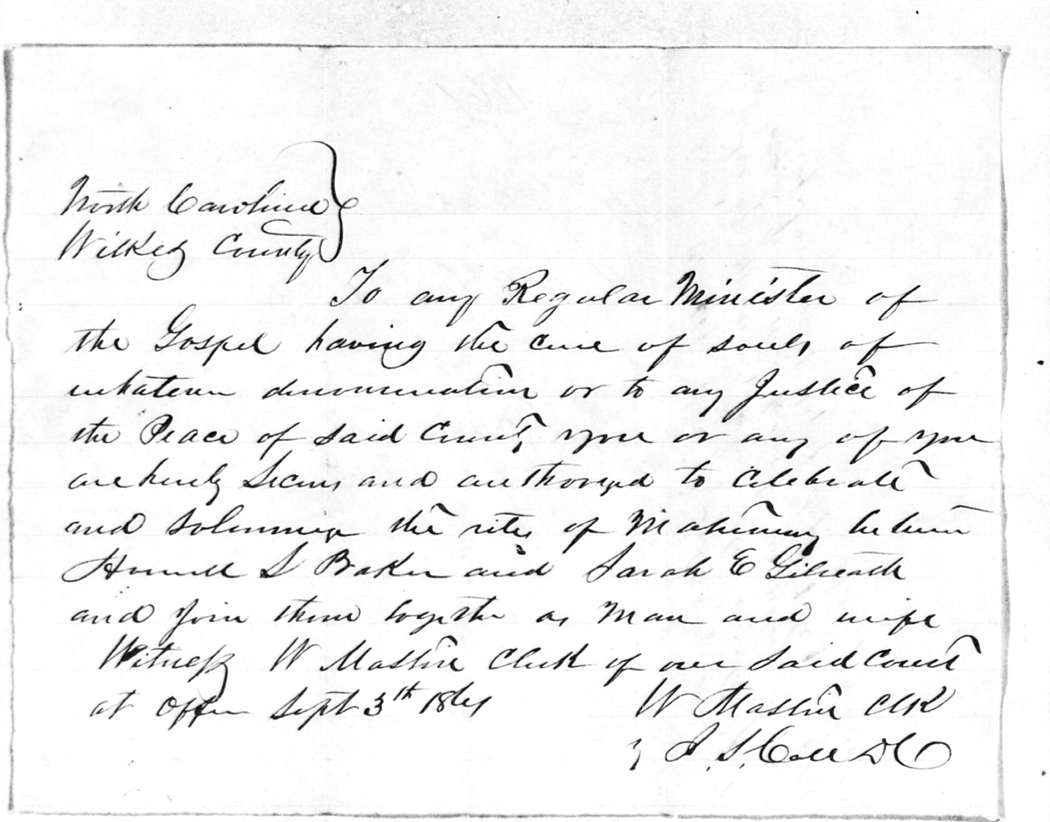 North Carolina
Wilkes County
To any Regular Minister of
the Gospel having the cure of souls of
whatever denomination or to any Justice of
the Peace of said County you or any of you
are hereby and authorized to celebrate
and solemnize the rites of Matrimony between
S Baker and Sarah E Gilreath
and join them together as Man and wife
Witness W Mastin Clerk of our said Court
at office Sept 3th 1861
W Mastin Clk
S. Call DC